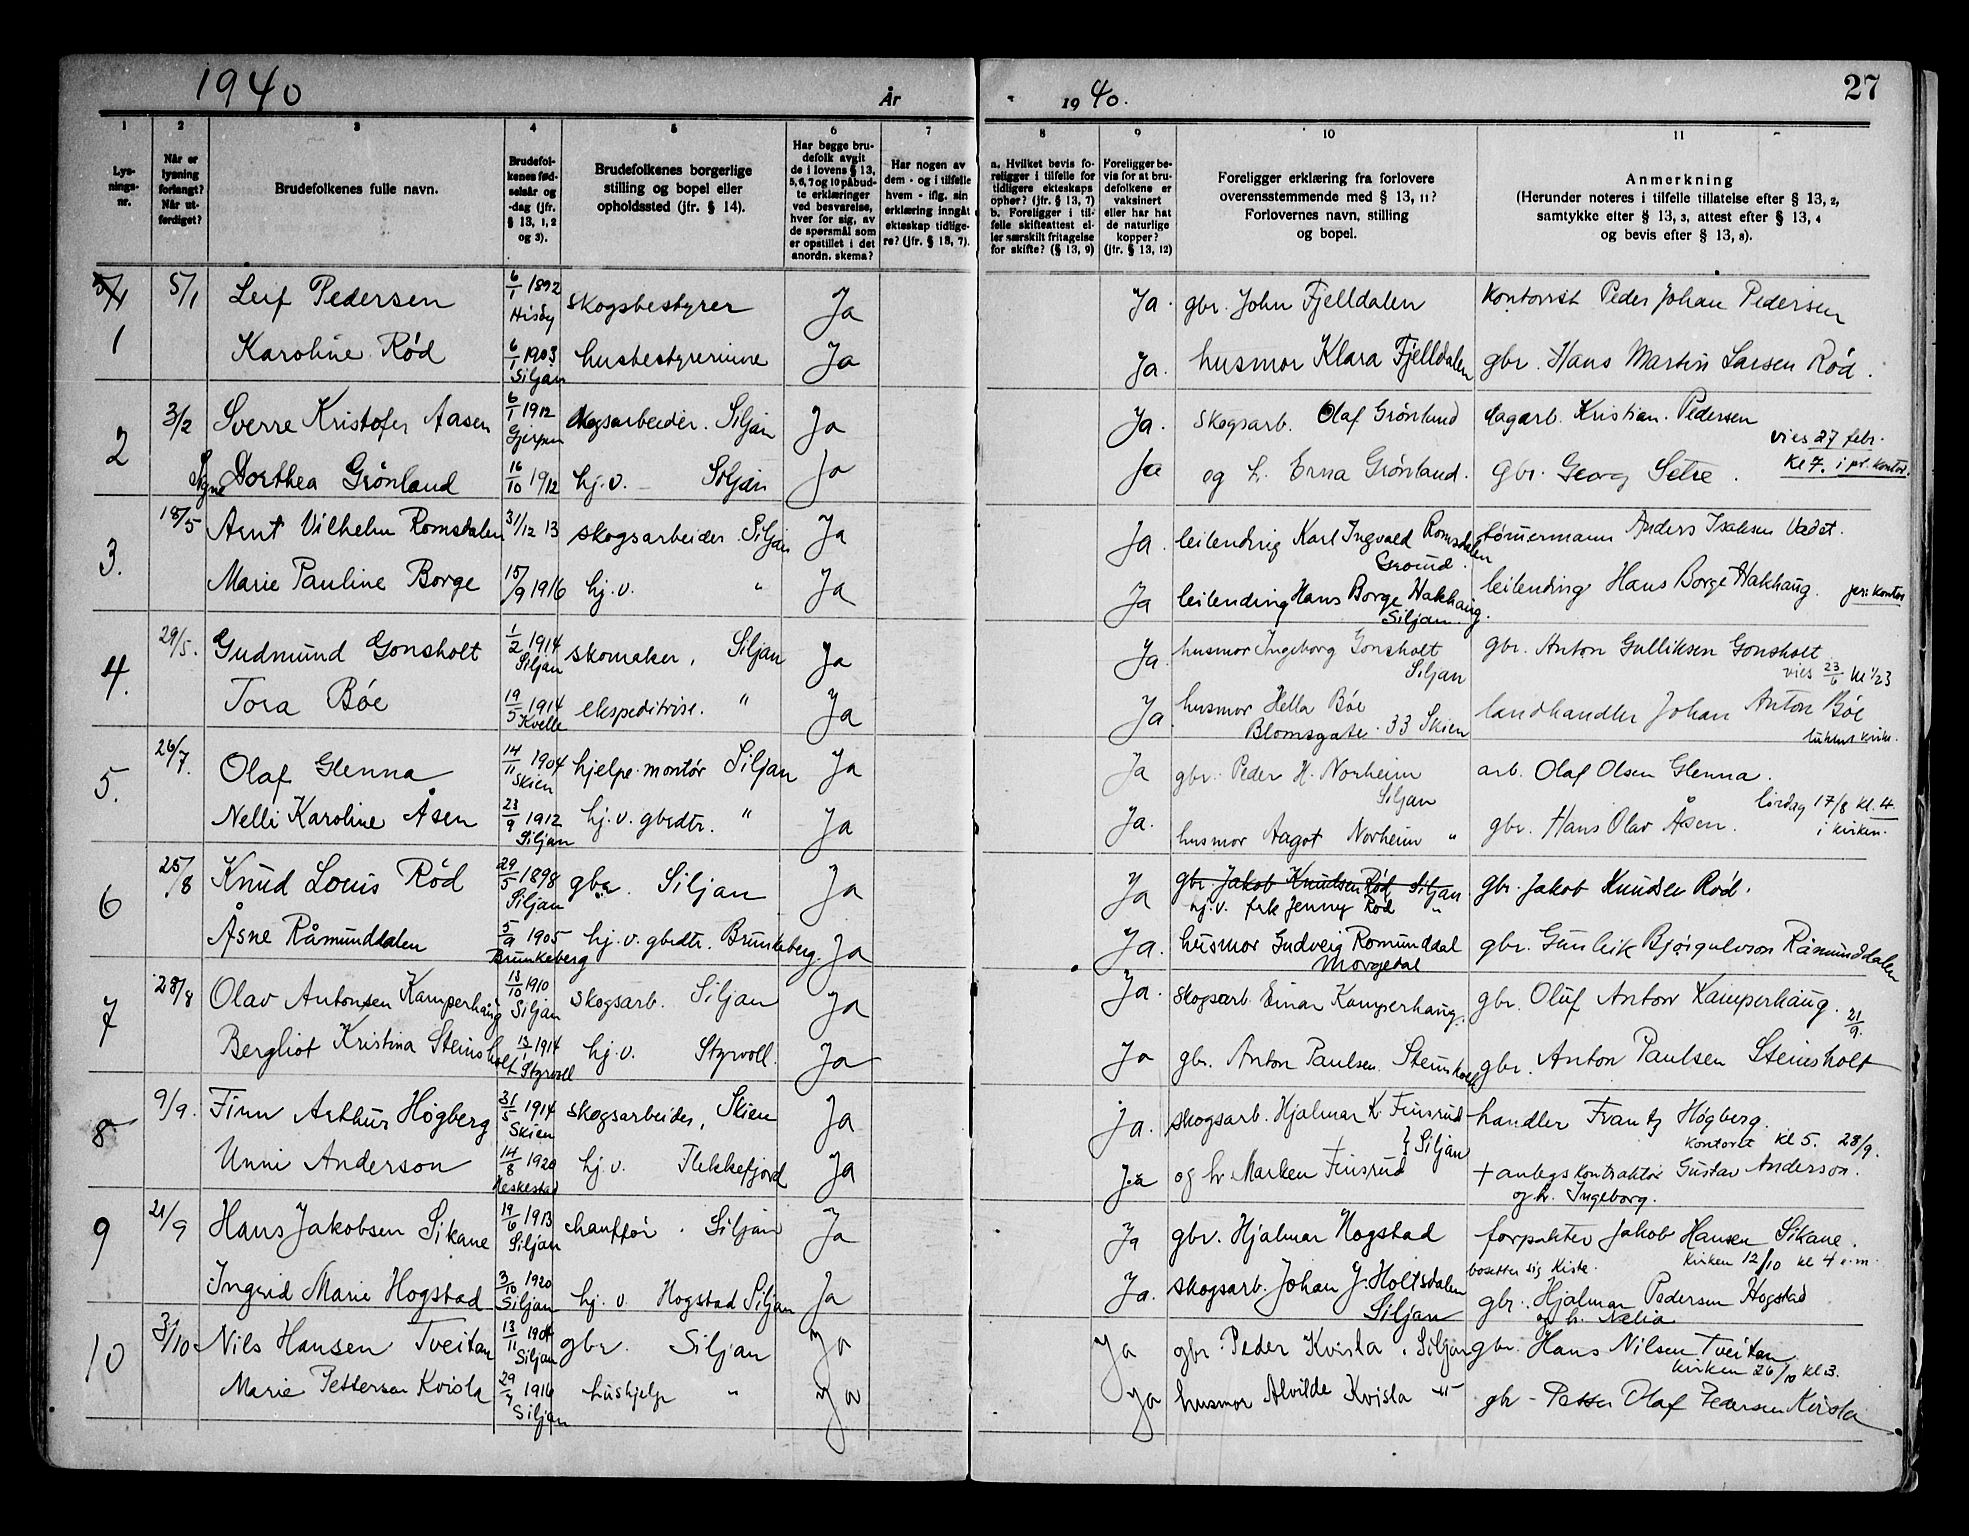 1940
År
1940.
27
1
2
3
4
5
6
7
8
9
10
11
Lys-
nings-
nr.
Når er
lysning
forlangt?
Når ut-
ferdiget?
Brudefolkenes fulle navn.
Brudefol-
kenes fød-
selsår og
-dag (jfr.
§ 13, 1, 2
og 3).
Brudefolkenes borgerlige
stilling og bopel eller
opholdssted (jfr. § 14).
Har begge bru-
defolk avgit
de i lovens § 13,
5, 6, 7 og 10 påbud-
te erklæringer
ved besvarelse,
hver for sig, av
de spørsmål som
er opstillet i det
anordn. skema?
Har nogen av
dem - og i tilfelle
hvem - iflg. sin
erklæring inngått
ekteskap tidlige-
re? (jfr. § 13, 7).
a. Hvilket bevis fo-
religger i tilfelle for
tidligere ekteskaps
ophør? (jfr. § 13, 7)
b. Foreligger i til-
felle skifteattest el-
ler særskilt fritagelse
for skifte? (§ 13, 9)
Foreligger be-
vis for at bru-
defolkene er
vaksinert
eller har hat
de naturlige
kopper?
(jfr. § 13, 12)
Foreligger erklæring fra forlovere
overensstemmende med § 13, 11?
Forlovernes navn, stilling
og bopel.
Anmerkning
(Herunder noteres i tilfelle tillatelse efter § 13, 2,
samtykke efter § 13, 3, attest efter § 13, 4
og bevis efter § 13, 8).
1 5/1 Leif Pedersen 6/1 1892 Hisøy skogsbestyrer Ja Ja. gbr. John Fjelldalen kontorist Peder Johan Pedersen
Karoline Rød 6/1 1903 Siljan husbestyrerinne Ja Ja. husmor Klara Fjelldalen gbr. Hans Martin Larsen Rød.
2 3/2 Sverre Kristofer Aasen 6/1 1912 Gjerpen skogsarbeider. Siljan Ja Ja. skogsarb. Olaf Grønlund sagarb. Kristian Pedersen
vies 27 febr.
kl 7. i pr. kontor.
Signe Dorthea Grønlund 16/10 1912 hj.v. Siljan Ja Ja og h. Erna Grønlund. gbr. Georg Setre.
3. 18/5 Arnt Vilhelm Romsdalen 31/12 13 skogsarbeider. Siljan Ja Ja. leilending Karl Ingvald Romsdalen tømmermann Anders Isaksen Vadet.
Marie Pauline Borge 15/9 1916 hj.v. " Ja Ja leilending Hans Borge Hakhaug Siljan. leilending Hans Borge Hakhaug. pr: kontor
4. 29/5. Gudmund Gonsholt 1/2 1914 Siljan skomaker, Siljan Ja Ja. husmor Ingeborg Gonsholt Siljan gbr. Anton Gulliksen Gonsholt
vies 23/6 kl 1/23
Tora Bøe 19/5 1914 Kvelle ekspeditrise. " Ja Ja. husmor Hella Bøe Blomsgate 33 Skien landhandler Johan Anton Bøe
lukket kirke.
5. 26/7. Olaf Glenna 14/11 1904 Skien hjelpe-montør Siljan Ja Ja gbr. Peder H. Norheim Siljan arb. Olaf Olsen Glenna.
lørdag 17/8 kl. 4
i kirken.
Nelli Karoline Åsen 23/9 1912 Siljan hj.v. gbrdtr. " Ja Ja. husmor Aagot Norheim " gbr. Hans Olav Åsen.
6 25/8 Knud Louis Rød 29/5 1898 Siljan gbr. Siljan Ja Ja gbr. Jakob Knudsen Rød, Siljan gbr. Jakob Knudsen Rød.
hj.v. frk Jenny Rød "
Åsne Råmunddalen 5/9 1905 Brunkeberg hj.v. gbrdtr. Brunkeberg. Ja Ja. husmor Gudveig Romunddal Morgedal gbr. Gunleik Bjørgulvson Råmunddalen
7 28/8 Olav Antonsen Kamperhaug 13/10 1910 Siljan skogsarb. Siljan Ja Ja. skogsarb. Einar Kamperhaug. gbr. Oluf Anton Kamperhaug. 21/9.
Bergliot Kristina Steinsholt 13/1 1914 Styrvoll hj.v. Styrvoll. Ja Ja gbr. Anton Paulsen Steinsholt gbr. Anton Paulsen Steinsholt
8 9/9. Finn Arthur Høgberg 31/5 1914 Skien skogsarbeider, Skien Ja Ja. skogsarb. Hjalmar K. Finsrud } Siljan handler Frantz Høgberg.
kontoret kl 5. 28/9.
Unni Anderson 14/8 1920 Heskestad hj.v. Flekkefjord Ja Ja og h. Marken Finsrud + anlegskontraktør Gustav Anderson.
og h. Ingeborg.
9 21/9 Hans Jakobsen Sikane 19/6 1913 Siljan chauffør. Siljan Ja Ja gbr. Hjalmar Hogstad forpakter Jakob Hansen Sikane.
bosetter sig Kiste. kirken 12/10 kl 4 e.m.
Ingrid Marie Hogstad 3/10 1920 Siljan hj.v. Hogstad Siljan Ja Ja. skogsarb. Johan J. Holtsdalen Siljan gbr. Hjalmar Pedersen Hogstad
og h. Nelia
10 3/10 Nils Hansen Tveitan 13/11 1904 Siljan gbr. Siljan Ja Ja gbr. Peder Kvisla, Siljan gbr. Hans Nilsen Tveitan
kirken 26/10 kl 3.
Marie Pettersen Kvisla 29/4 1916 Siljan hushjelp " Ja Ja husmor Alvilde Kvisla -"- gbr - Petter Olaf Pedersen Kvisla